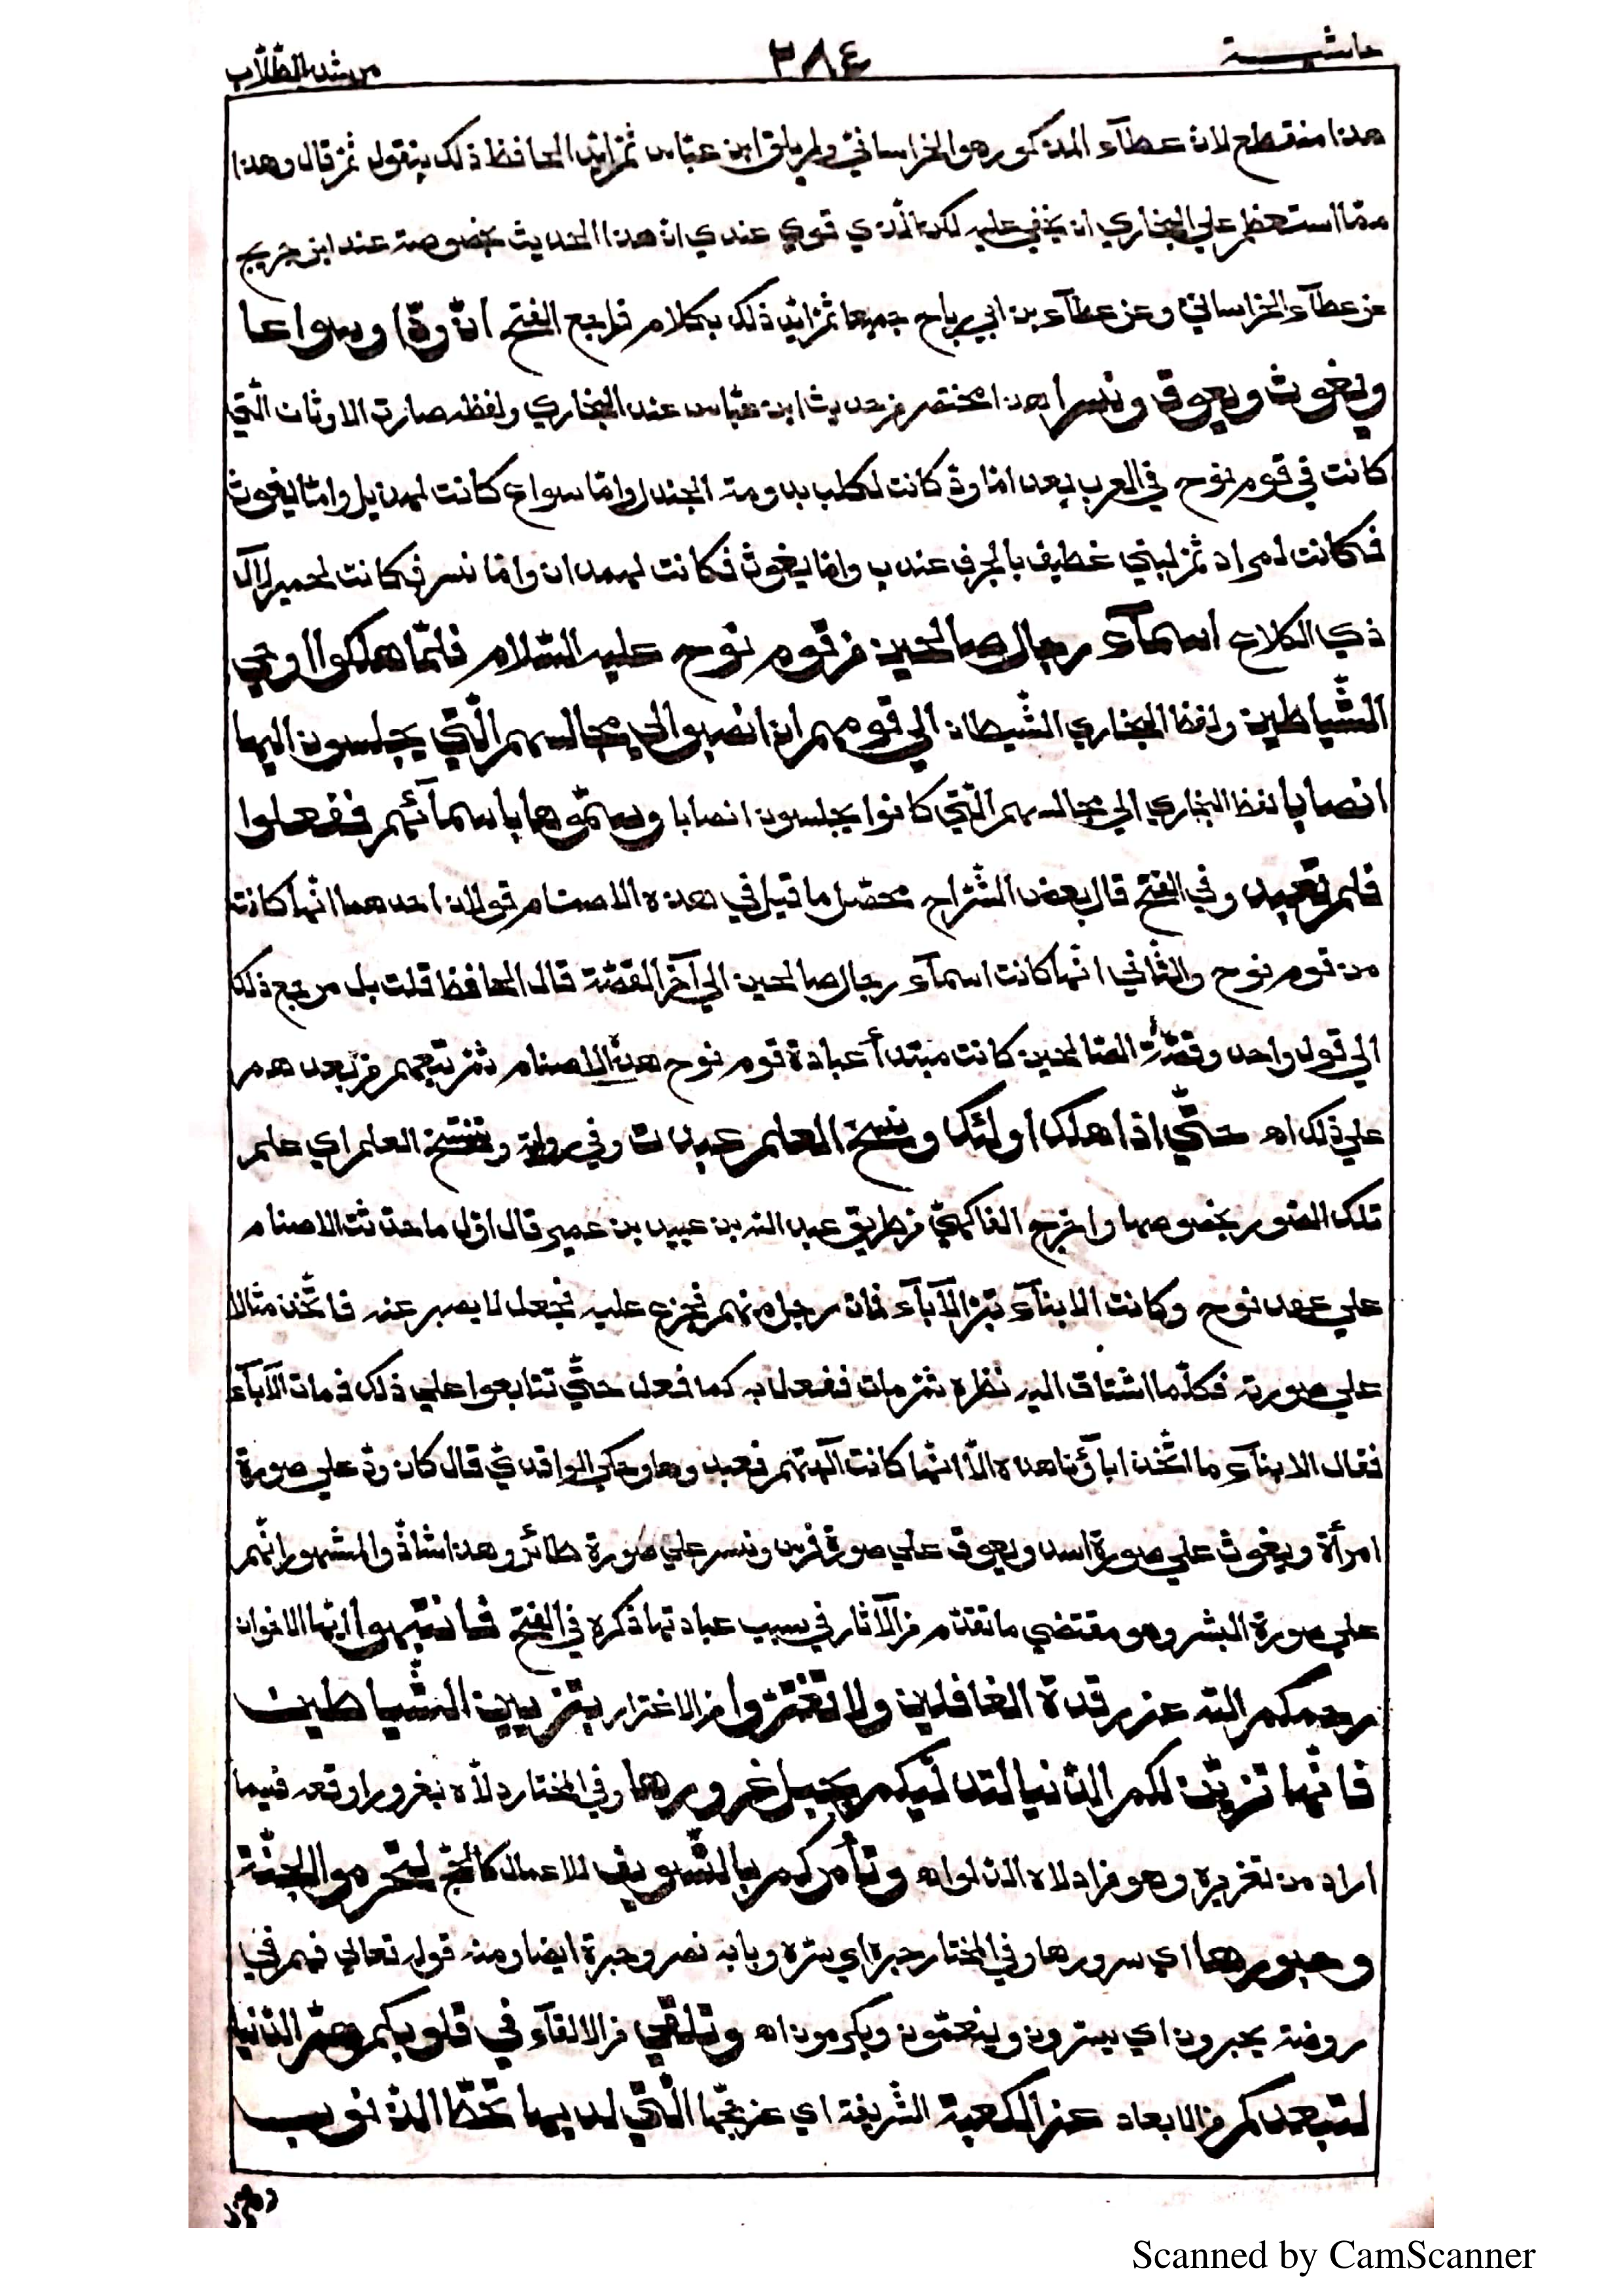 حاشية ٣٨٤ مرشد الطّلّاب
هذا منقطع لان عطآء المذكور هو الخراسانيّ ولم يلق ابن عبّاس ثمّ ايّد الحافظ ذلك بنقول ثمّ قال وهذا
ممّا استعظم علي البخاري ان يخفي عليه لكن الّذي قوي عندي انّ هذا الحديث بخصوصه عند ابن جريج
عن عطآء الخراساني وعن عطآء بن ابي رباح جميعا ثمّ ايّد ذلك بكلام فراجع الفتح انّ ودّا وسواعا
ويغوث ويعوق ونسرا هذا مختصر من حديث ابن عبّاس عند البخاري ولفظه صارت الاوثان الّتي
كانت في قوم نوح في العرب بعد امّا ودّ كانت لكلب بدومة الجندل وامّا سواع كانت لهذيل وامّا يغوث
فكانت لمراد ثمّ لبني غطيف بالجرف عند ب وامّا يغوث فكانت لهمدان وامّا نسر فكانت لحمير لآل
ذي الكلاع اسمآء رجال صالحين من قوم نوح عليه السّلام فلمّا هلكوا اوحي
الشّياطين ولفظ البخاري الشّيطان الي قومهم ان انصبوا الي مجالسهم الّتي يجلسون اليها
انصابا لفظ البخاري الي مجالسهم الّتي كانوا يجلسون انصابا وسمّوها باسمآئهم ففعلوا
فلم تعبد وفي الفتح قال بعض الشّراح محصّل ما قيل في هذه الاصنام قولان احدهما انّها كانت
من قوم نوح والثّاني انّها كانت اسمآء رجال صالحين الي آخر القصّة قال الحافظ قلت بل مرجع ذلك
الي قول واحد وقصّة الصّالحين كانت مبتدأ عبادة قوم نوح هذه الاصنام ثمّ تبعهم من بعدهم
علي ذلك اه حتّي اذا هلك اولئك ونسخ العلم عبدت وفي رواية وتنسّخ العلم اي علم
تلك الصّور بخصوصها واخرج الفاكهيّ من طريق عبد الله بن عبيد بن عمير قال اوّل ما حدثت الاصنام
علي عهد نوح وكانت الابنآء تبرّ الآبآء فمات رجل منهم فجزع عليه فجعل لا يصبر عنه فاتّخذ مثالا
علي صورته فكلّما اشتاق اليه نظره ثمّ مات ففعل به كما فعل حتّي تتابعوا علي ذلك فمات الآبآء
فقال الابنآء ما اتّخذ اباؤنا هذه الّا انّها كانت آلهتهم فعبدوها وحكي الواقديّ قال كان ودّ علي صورة
امرأة ويغوث علي صورة اسد ويعوق علي صورة فرس ونسر علي صورة طائر وهذا شاذّ والمشهور انّهم
علي صورة البشر وهو مقتضي ما تقدّم من الآثار في سبب عبادتها ذكره في الفتح فانتبهوا ايّها الاخوان
رحمكم الله عن رقدة الغافلين ولا تغترّوا من الاغترار بتزيين الشّياطين
فانّها تزيّن لكم الدّنيا لتدلّيكم بحبل غرورها وفي المختار دلّاه بغرور اوقعه فيما
اراد من تغريره وهو من ادلاء الدّلو اه وتأمركم بالتّسويف للاعمال كالحجّ لتحرموا الجنّة
وحبورها اي سرورها وفي المختار حبره اي سرّه وبابه نصر وحبرة ايضا ومنه قوله تعالي فهم في
روضة يحبرون اي يسرّون وينعّمون ويكرمون اه وتلقي من الالقآء في قلوبكم همّ الدّنيا
لتبعدكم من الابعاد عن الكعبة الشّريفة اي عن حجّها الّتي لديها تحطّ الذّنوب
Scanned by CamScanner